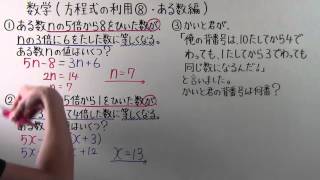 数学(方程式の利用⑧・ある数編)
①ある数nの5倍から8をひいた数が、
nの3倍に6をたした数に等しくなる。
ある数nの値はいくつ?
5n-8=3n+6
2n=14
n=7
n=7
②
5倍から1をひいた数が
て4倍した数に等しくなる。
ある数 の値はいくつ?
5x- x+3)
5x x+12
x=13
③かいと君が、
「俺の背番号は、10たしてから4で
わっても、1たしてから3でわっても
同じ数になるんだ!」
と言いました。
かいと君の背番号は何番?